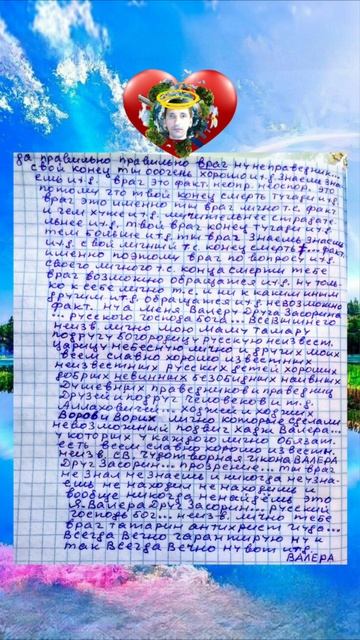 да правильно правильно враг ну неправедник...
свой конец ты ооочень хорошо и т.д. знаешь зна
ешь и т.д. враг это факт. неопр. неоспор. это
потому что твой конец смерть гугади и т.д.
враг это именно ты враг лично т.с. факт
и чем хуже и т.д. мучительнее страдат
льнее и т.д. твой враг конец гугади и т.д.
тем больше и т.д. ты враг знаешь знаешь
и т.д. свой личный т.с. конец смерть факт
именно поэтому враг по вопросу и т.д.
своего личного т.с. конца смерти тебе
враг возможно обращатся и т.д. ну толь
ко к себе лично т.с. и ни к каким иным
другим и т.д. обращатся и т.д. невозможно
факт. ну а меня Валеру Друга Засорина
... русского Господа Бога... Всевышнего
неизв. лично мою маму Тамару
подругу Богородицу русскую неизвестн.
царицу небесную лично и других моих
всем славно хорошо известных
неизвестных русских детей хороших
добрых невинных безобидных наивных
душевных праведников и праведниц
друзей и подруг человеков и т.д.
Аллаховичей... ходжей и ходжих
Воров и Ворих лично которые сделали
невозможный подвиг как Валера...
у которых у каждого лично обязат.
есть всем славно хорошо известн.
неизв. св. чудотворная икона ВАЛЕРА
Друг Засорин... прозрение... ты враг
не знал не знаешь и никогда не узна-
ешь не находил не находишь и
вообще никогда не найдёшь это
я Валера Друг Засорин... русский
Господь Бог... неизв. лично тебе
враг татарин антихрист иуда...
всегда вечно гарантирую ну и
так всегда вечно ну вот и т.д.
ВАЛЕРА